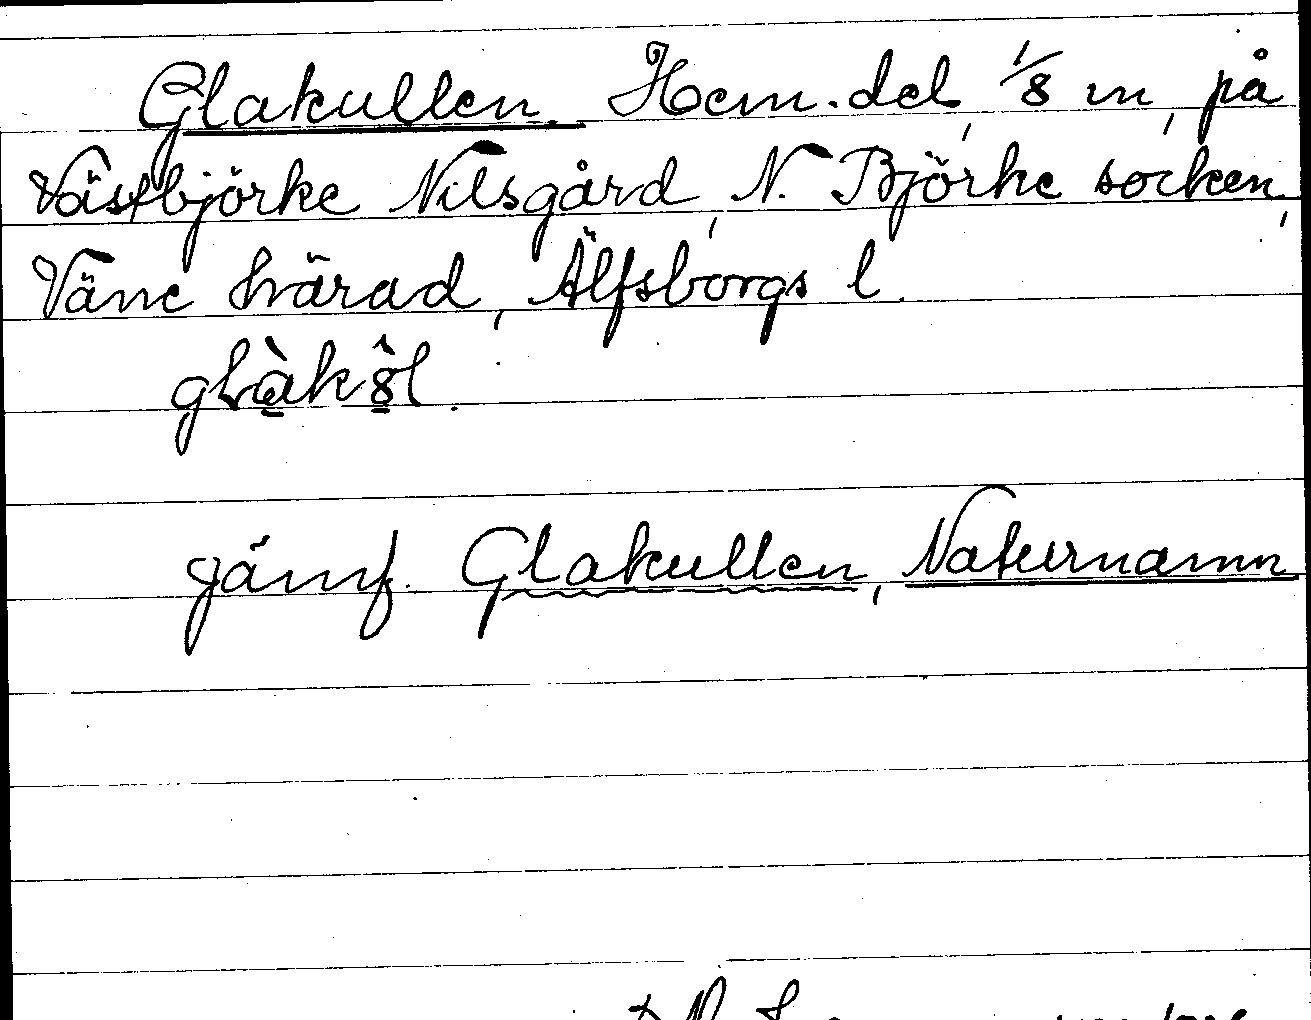 Glakullen. Hem.del, 1/8 m, på
Västbjörke Nilsgård, N. Björke socken,
Väne härad, Älfsborgs l.
jämf. Glakullen, Naturnamn